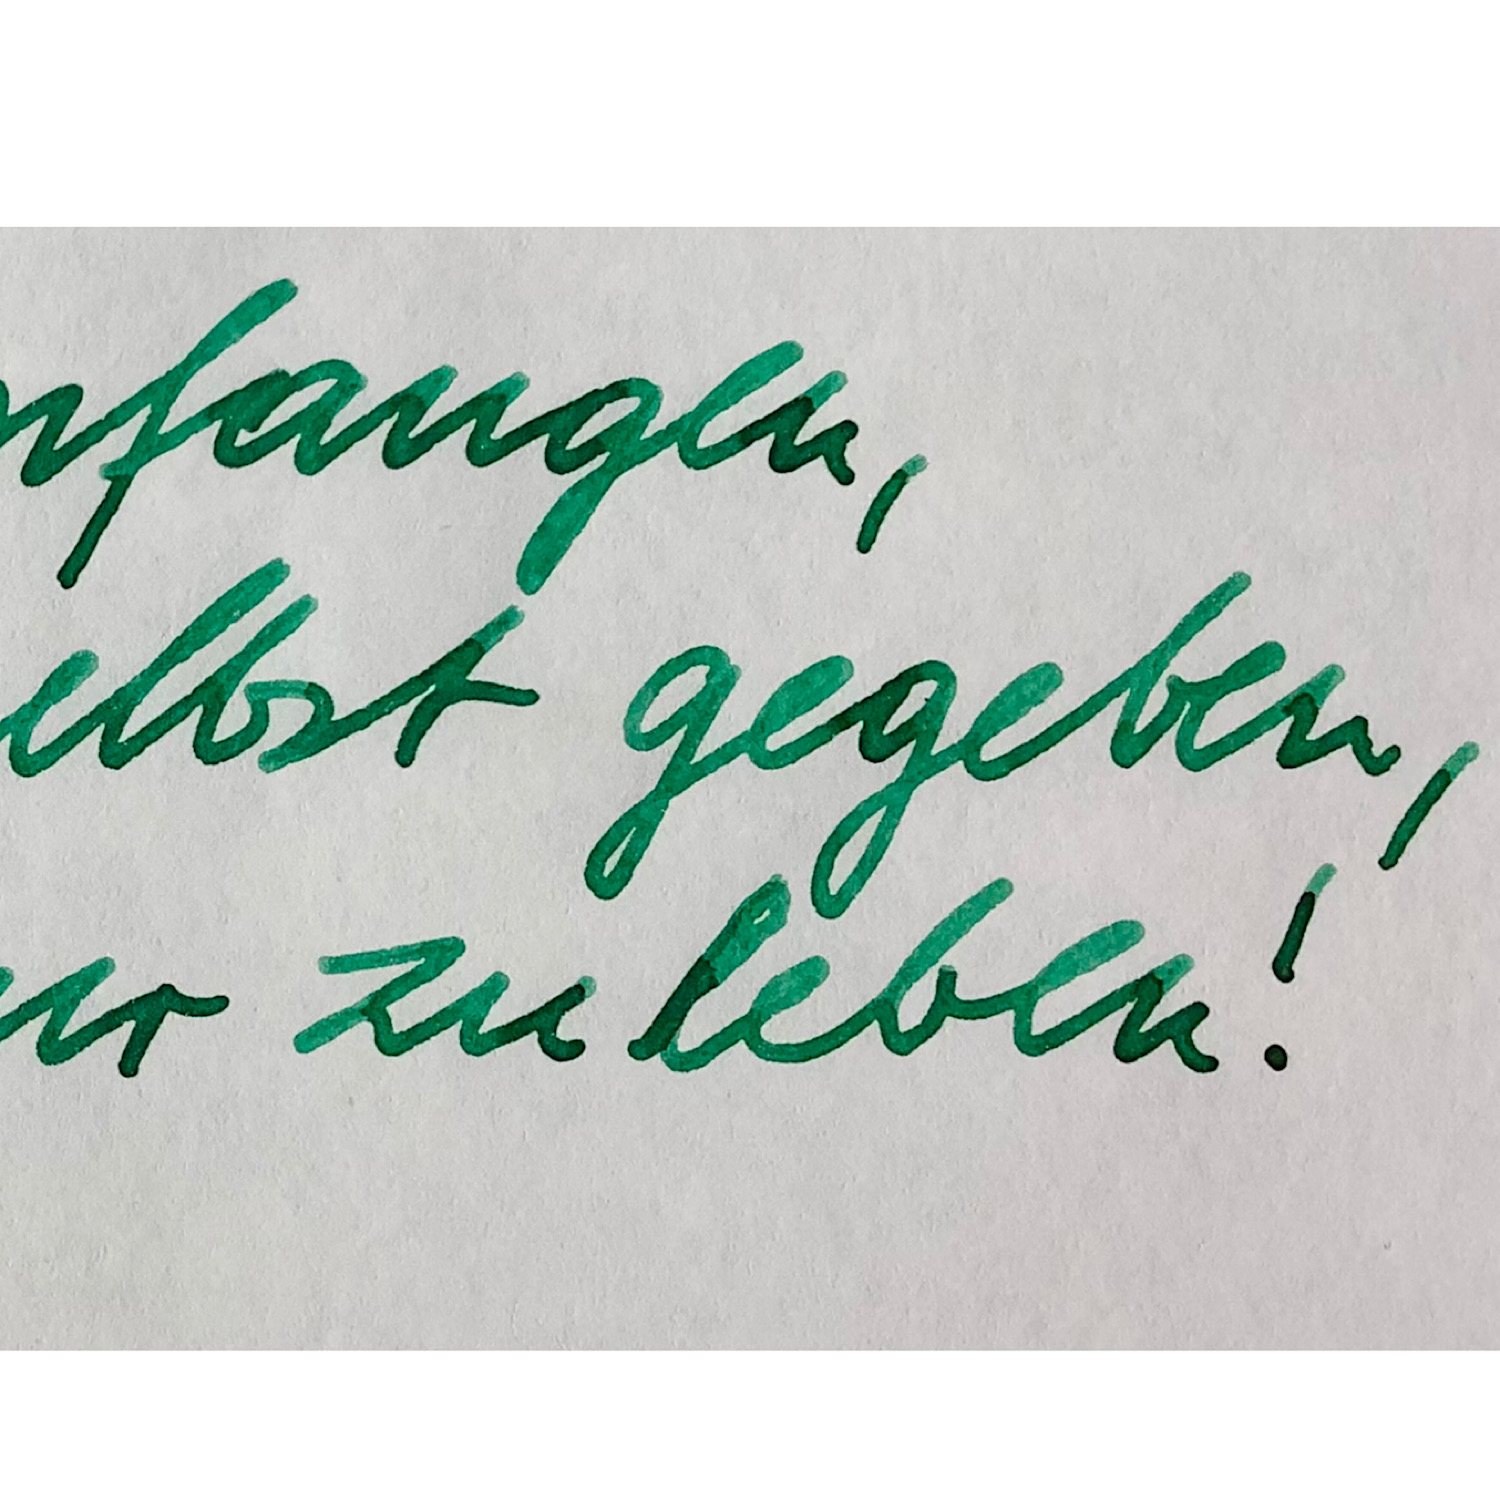 nfangen,
elbst gegeben,
zu leben!